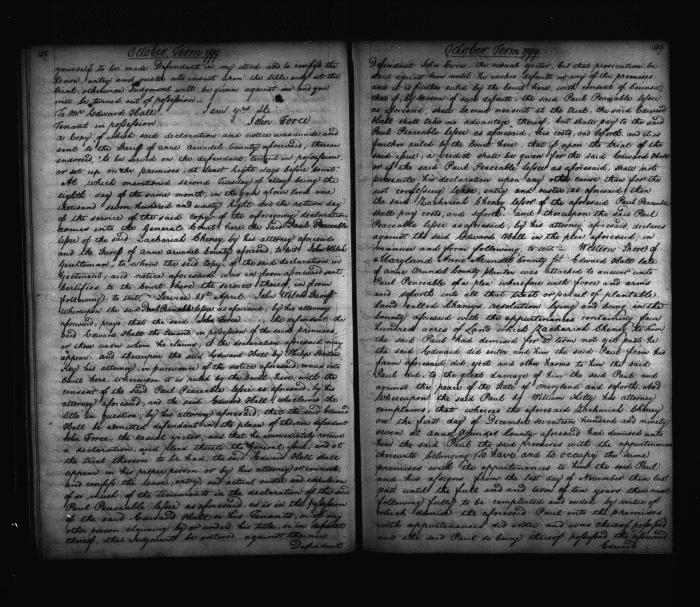 October Term 1799
yourself to be made Defendant in my stead and to confess the
lease entry and ouster and insist upon the title only at the
trial, otherwise Judgment will be given against me and you
will be turned out of possession
To Mr Edward Hall I am yrs &c
Tenant in possession John Force
a Copy of which said declaration and notice was made and
sent to the Sheriff of Anne Arundel County aforesaid, thereon
endorsed, to be served on the defendant, tenant in possession
or set up on the premises at least eight days before Court
At which mentioned second Tuesday of May being the
eighth day of the same month, in the year of our Lord one
thousand seven hundred and ninety eight did the return day
of the service of the said copy of the aforegoing declaration
comes into the General Court here the said Paul Peaceable
lessee of the said Zachariah Cheney by his attorney aforesaid
and the Sheriff of Anne Arundel County aforesaid, to wit John Welch
Gentleman, to whom the said copy of the said declaration in
Ejectment, and notice aforesaid was in form aforesaid sent
Certifies to the Court here the service thereof, in form
following to wit, Service 28th April John Welch Sheriff
Whereupon the said Paul Peaceable lessee as aforesaid, by his attorney
aforesaid, prays that the said John Force the defendant, the
said Edward Hall the tenant in possession of the said premises
or those under whom he claims, to the declaration aforesaid may
appear and thereupon the said Edward Hall by Philip Barton
Key his attorney in pursuance of the notice aforesaid, comes into
Court here Whereupon it is ruled by the Court here, with the
consent of the said Paul Peaceable lessee as aforesaid by his
attorney aforesaid, and the said Edward Hall who claims the
title in question, by his attorney aforesaid, that the said Edward
Hall be admitted defendant in the place of the now defendant
John Force, the casual ejector, and that he immediately receive
a declaration, and plead thereto the general issue, and at
the trial thereon to be had, the said Edward Hall shall
appear in his proper person or by his attorney or counsel,
and confess the lease, entry and actual ouster and expulsion
of so much of the tenements in the declaration of the said
Paul Peaceable lessee as aforesaid, as is in the possession
of the said Edward Hall or his Tenants, or of any
other person claiming by or under his title, or in default
thereof, that Judgments be entered against the now
Defendant
October Term 1799
Defendant John Force the casual ejector, but that prosecution be
staid against him until he makes default in any of the premises
and it is further ruled by the Court here, with consent of Counsel
that if by reason of such default, the said Paul Peaceable lessee
as aforesaid, shall be nonsuit at the trial, the said Edward
Hall shall take no advantage thereof, but shall pay to the said
Paul Peaceable lessee as aforesaid, his costs, and soforth and it is
further ruled by the Court here, that if upon the trial of the
said issue, a verdict shall be given for the said Edward Hall
or if the said Paul Peaceable lessee as aforesaid, shall not
prosecute his declaration upon any other cause than for the
not confessing lease, entry and ouster as aforesaid, then
the said Zachariah Cheney lessor of the aforesaid Paul Peaceable
shall pay costs, and soforth and thereupon the said Paul
Peaceable lessee as aforesaid, by his attorney aforesaid, declares
against the said Edward Hall in the plea aforesaid, in
manner and form following to wit Western Shore of
Maryland Anne Arundel County sct Edward Hall late
of Anne Arundel County planter was attached to answer unto
Paul Peaceable of a plea wherefore with force and arms
and soforth into all that tract or parcel of plantable
land called Chaneys resolution lying and being in the
county aforesaid with the appurtenances containing four
hundred acres of Land which Zachariah Cheney to him
the said Paul had demised for a term not yet past he
the said Edward did enter and him the said Paul from his
farm aforesaid did eject and other harms to him the said
Paul did to the great damage of him the said Paul and
against the peace of the State of Maryland and soforth. And
Whereupon the said Paul by William Kilty his attorney
complains, that whereas the aforesaid Zachariah Cheney
on the first day of December seventeen hundred and ninety
seven at Anne Arundel County aforesaid had demised unto
him the said Paul the said premises with the appurtenances
thereunto belonging To have and to occupy the same
premises with the appurtenances to him the said Paul
and his assigns from the last day of November then last
past until the full end and term of ten years then next
following fully to be compleated and ended by virtue of
which demise the aforesaid Paul into the premises
with appurtenances did enter and was thereof possessed
and the said Paul so being thereof possessed the aforesaid
Edward